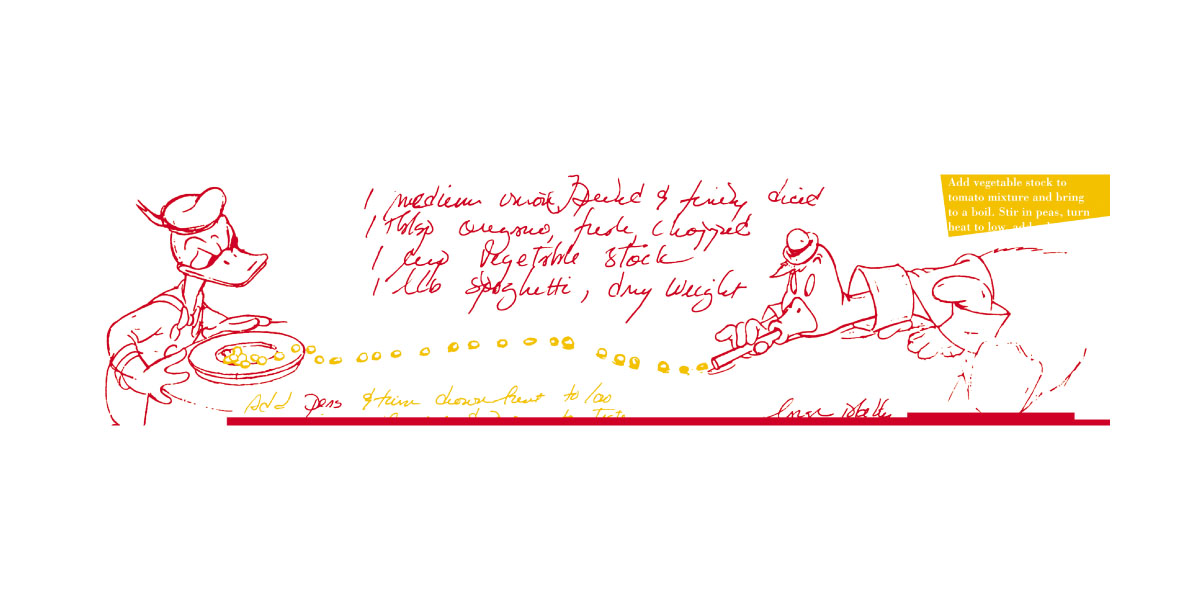 1 medium onion, peeled & finely diced
1 Tblsp oregano, fresh, chopped
1 cup vegetable stock
1 lb spaghetti, dry weight
Add vegetable stock to
tomato mixture and bring
to a boil. Stir in peas, turn
heat to low, add
Add peas & turn down heat to low